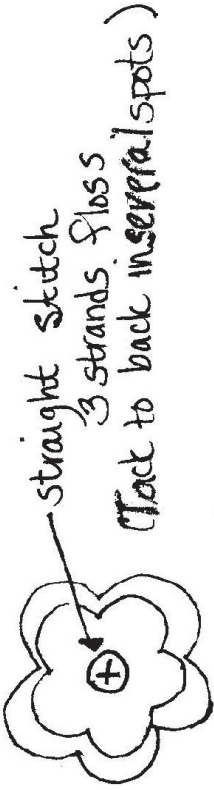 straight stitch
3 strands floss
(Tack to back in several spots)